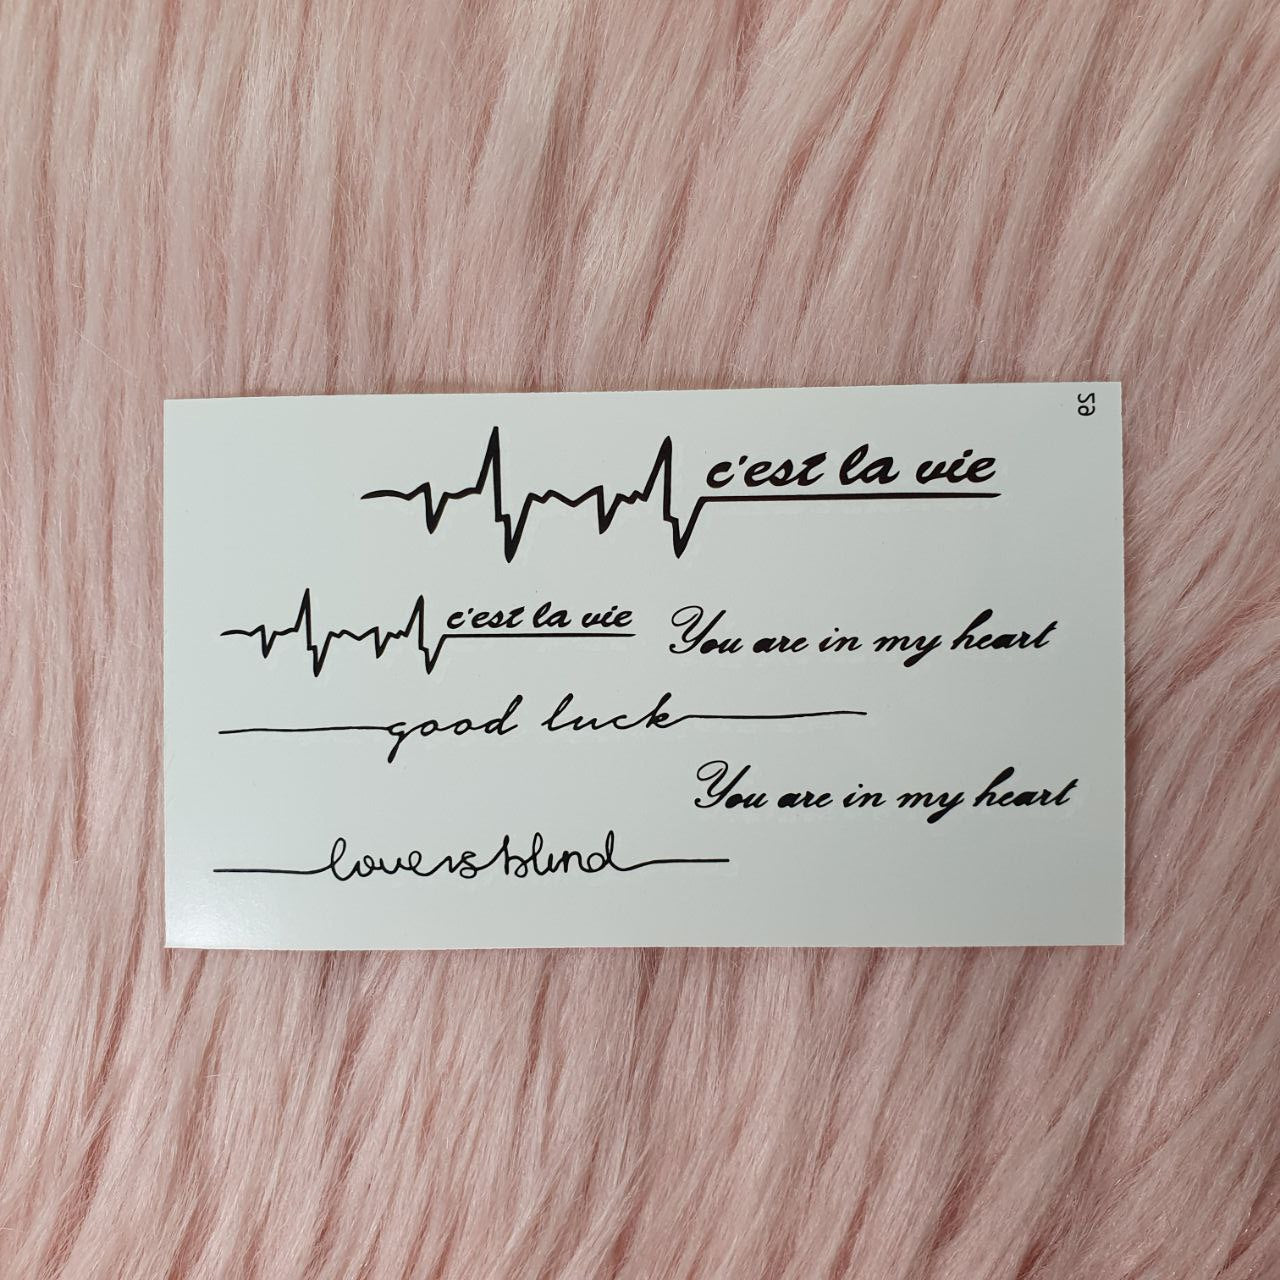 62
c'est la vie
c'est la vie
You are in my heart
good luck
You are in my heart
love is blind